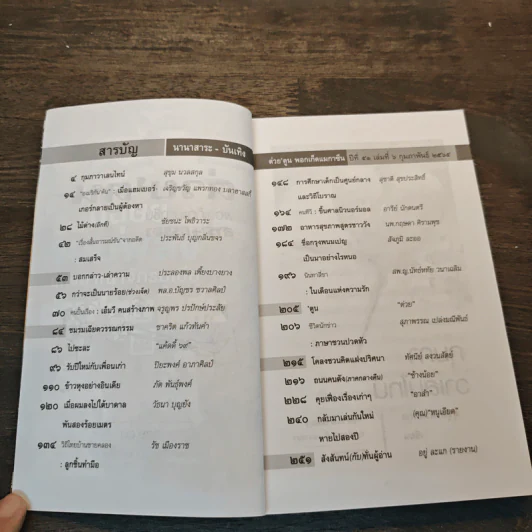 สารบัญ
นานาสาระ - บันเทิง
๔ กุมภาวาเลนไทน์ สุขุม นวลสกุล
๑๔ : เมื่อแฮมเบอร์- เจริญขวัญ แพรกทอง
เกอร์กลายเป็นผู้ต้องหา
๒๘ ไม้ด่าง(อีกที) ชัยชนะ โพธิวาระ
๔๒ ประพันธ์ บุญกลั่นขจร
: สมเสร็จ
๕๓ บอกกล่าว-เล่าความ ประลองพล เพี้ยงบางยาง
๕๖ กว่าจะเป็นนายร้อย(ช่วงเด็ก) พล.อ.บัญชร ชวาลศิลป์
๗๐ คนเป็นเรื่อง : เอ็นวี คนสร้างภาพ จรูญพร ปรปักษ์ประลัย
๘๔ ชมรมเฉียดวรรณกรรม ชาคริต แก้วทันคำ
๘๖ ไปซะละ "แค้ตตี้ ๖๙"
๙๖ รับปีใหม่กับเพื่อนเก่า ปิยะพงศ์ อาภาศิลป์
๑๑๐ ข้าวหุงอย่างอินเดีย ภัค พันธุ์พงศ์
๑๒๐ เมื่อผมลงไปใต้บาดาล วัธนา บุญยัง
พันสองร้อยเมตร
๑๓๔ วิถีไทยบ้านชายคลอง รัช เมืองราช
: ลูกชิ้นทำมือ
ต่วย'ตูน พอกเก็ตแมกาซีน ปีที่ เล่มที่ ๖ กุมภาพันธ์ ๒๕๖๕
๑๔๘ การศึกษาเด็กเป็นศูนย์กลาง สุชาติ สุขประสิทธิ์
และวิถีโบราณ
๑๖๔ : ขึ้นศาลนิวนอร์มอล อาชัญ นักสอน
๑๗๒ อาหารสุขภาพสูตรชาววัง นพ.กฤษดา ศิรามพุช
๑๘๔ ชื่อกรุงพนมเปญ ละออ
เป็นมาอย่างไรหนอ
๑๙๖ นิยตาลีชา
: ในเดือนแห่งความรัก
๒๐๕ 'ตูน "ต่วย"
๒๐๖ ชีวิตนักข่าว สุภาพรรณ เปล่งมณีพันธ์
: ภาษาชวนปวดหัว
๒๑๕ โคลงชวนคิดแฝงปริศนา ทัศนีย์
๒๑๖ ถนนคนดัง(ภาคกลางคืน) "ช้างน้อย"
๒๒๘ คุยเฟื่องเรื่องเก่าๆ "อาเต๋า"
๒๔๐ กลับมาเล่นกันใหม่ (คุณ)"หนูเอียด"
หายไปสองปี
๒๕๑ สังสันทน์(กับ)ท่านผู้อ่าน อยู่ ละแก (รายงาน)